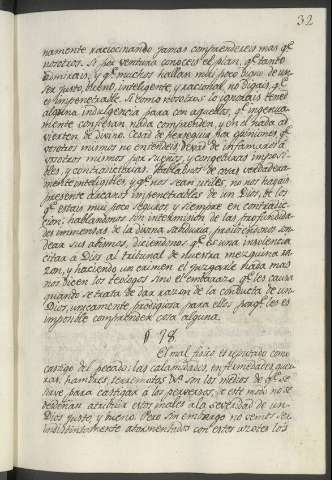 32
namente raciocinando jamas comprendereis mas qᵉ
nosotros. Si por ventura conoceis el plan, qᵉ tanto
admirais, y qᵉ muchos hallan mui poco digno de un
Ser justo, bueno, inteligente, y racional, no digais, qᵉ
es impenetrable. Si como nosotros lo ignorais tened
alguna indulgencia para con aquellos, qᵉ ingenua-
mente confiesan nada comprehender, y en el nada ad-
vierten de divino. Cesad de perseguir por opiniones, qᵉ
vosotros mismos no entendeis, dexad de infamaros a
vosotros mismos por sueños, y congeturas imposi-
bles, y contradictorias. Habladnos de cosas verdadera-
mente inteligibles, y qᵉ nos sean utiles, no nos hagais
presente arcanos impenetrables de un Dios, de los
qᵉ estais mui poco seguros, y siempre en contradic-
cion: hablandonos sin intermision de las profundida-
des inmensas de la divina sabiduria, prohibiendonos son-
dear sus abismos, diciendonos qᵉ es una insolencia
citar a Dios al tribunal de nuestra mezquina ra-
zon, y haciendo un crimen el juzgarle nada mas
nos dicen los teologos sino el embarazo qᵉ les causa
quando se trata de dar razon de la conducta de un
Dios, unicamente prodigiosa para ellos porqᵉ les es
imposible comprehender cosa alguna.
§ 98.
El mal fisico es reputado como
castigo del pecado: las calamidades, enfermedades, guer-
ras, hambres, terremotos &ᵃ son los medios de qᵉ se
sirve para castigar a los perversos, de este modo no se
desdeñan atribuir estos males a la severidad de un
Dios justo, y bueno. Pero sin embargo no vemos ser
indistintamente atormentados con estos azotes los